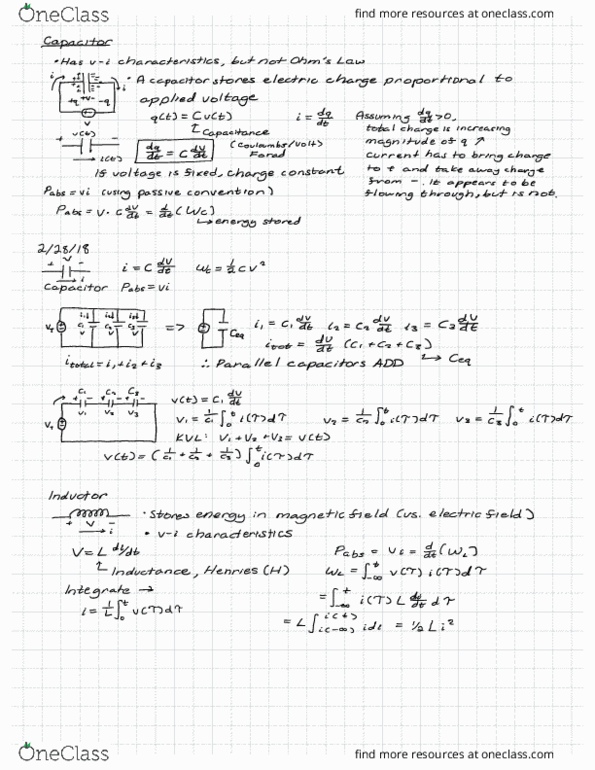 OneClass
find more resources at oneclass.com
Capacitor
• Has v-i characteristics, but not Ohm's Law
• A capacitor stores electric charge proportional to
applied voltage
q(t) = Cv(t)
Capacitance
(coulombs/volt)
Farad
i = dq/dt
dq/dt = C dv/dt
If voltage is fixed, charge constant
Assuming dq/dt > 0,
total charge is increasing
magnitude of q ↑
current has to bring charge
to + and take away charge
from -. It appears to be
flowing through, but is not.
Pabs = vi (using passive convention)
Pabs = v · C dv/dt = d/dt (Wc)
energy stored
2/28/18
i = C dv/dt
Wt = 1/2 cv²
Capacitor Pabs = vi
=>
Ceq
i₁ = C₁ dv/dt i₂ = C₂ dv/dt i₃ = C₃ dv/dt
itot = dv/dt (C₁ + C₂ + C₃)
itotal = i₁ + i₂ + i₃
∴ Parallel capacitors ADD
Ceq
C₁ C₂ C₃
v₁ v₂ v₃
v(t) = C₁ dv/dt
v₁ = 1/C₁ ∫₀ᵗ i(τ)dτ v₂ = 1/C₂ ∫₀ᵗ i(τ)dτ v₃ = 1/C₃ ∫₀ᵗ i(τ)dτ
KVL: v₁ + v₂ + v₃ = v(t)
v(t) = (1/C₁ + 1/C₂ + 1/C₃) ∫₀ᵗ i(τ)dτ
Inductor
• Stores energy in magnetic field (vs. electric field)
• v-i characteristics
V = L di/dt
Inductance, Henries (H)
Integrate →
i = 1/L ∫₀ᵗ v(τ)dτ
Pabs = vi = d/dt (WL)
WL = ∫₋∞ᵗ v(τ) i(τ) dτ
= ∫₋∞ᵗ i(τ) L di/dt dτ
= L ∫ i(-∞) i(t) idi = 1/2 Li²
OneClass
find more resources at oneclass.com